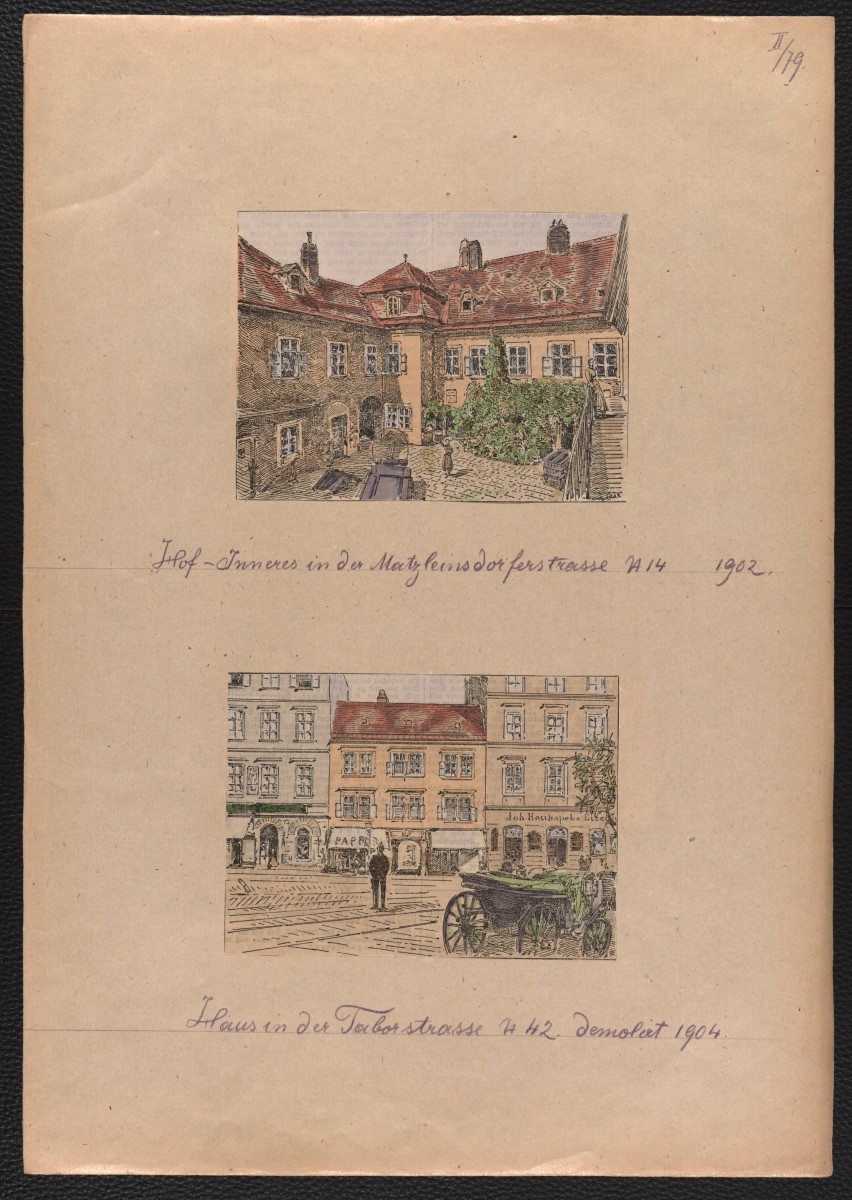 II/79.
Hof-Inneres in der Matzleinsdorferstrasse N 14 1902.
PAPI
Joh. 
Haus in der Taborstrasse N 42. demolirt 1904.